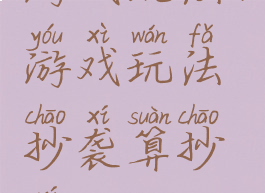 yóu xì wán fǎ
游戏玩法
chāo xí suàn chāo
抄袭算抄